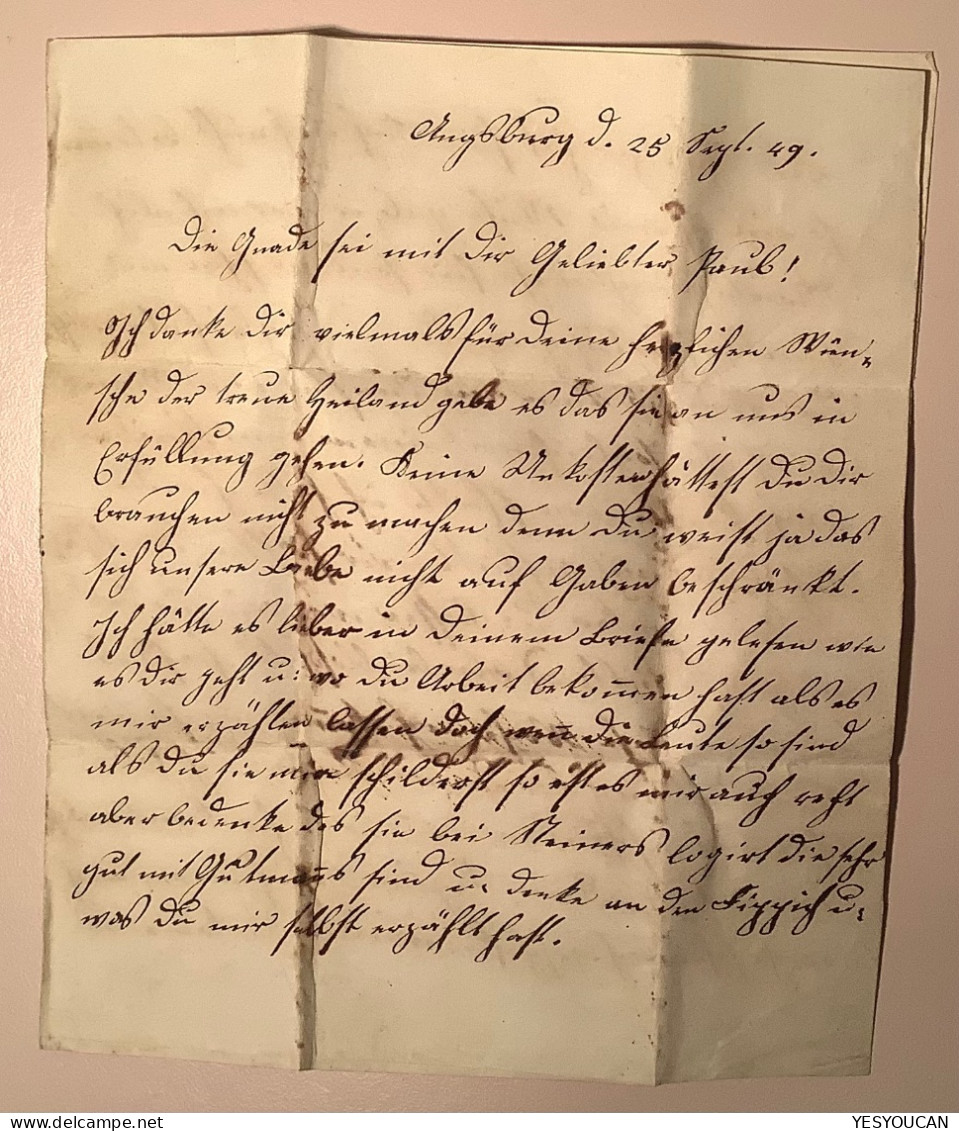 Augsburg d. 25 Sept. 49.
Die Gnade sei mit Dir Geliebter Paul!
Ich danke Dir vielmals für Deine herzlichen Wün-
sche der treue Heiland gebe es das sie an uns in
Erfüllung gehen. Keine Unkosten hättest Du Dir
brauchen nicht zu machen denn Du weist ja das
sich unsere Liebe nicht auf Gaben beschränkt.
Ich hätte es lieber in Deinem Briefe gelesen wie
es Dir geht u: wo Du Arbeit bekom̄en hast als es
mir erzählen lassen doch wen̄ die Leute so sind
als Du sie mir schilderst so ist es mir auch recht
aber bedenke das sie bei Steiners logirt die sehr
gut mit Gutman̄s sind u. denke an den Fippich u-
was Du mir selbst erzählt hast.
YESYOUCAN